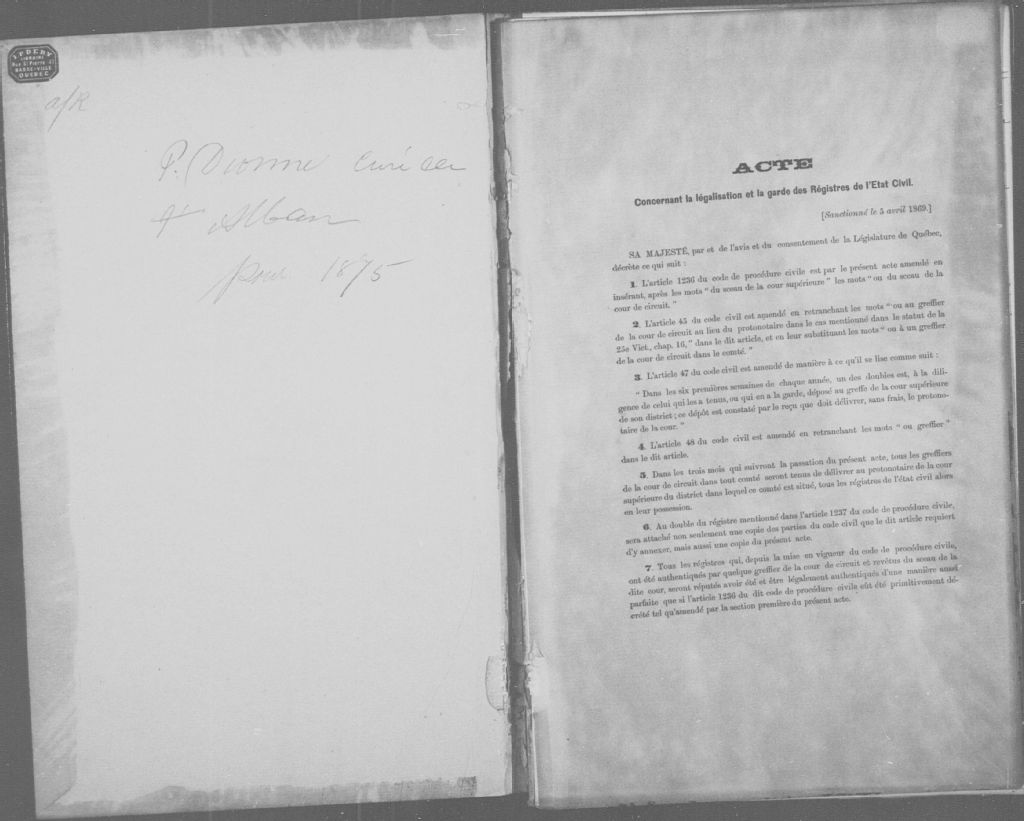 J. P. DERY
LIBRAIRE
RUE St PIERRE 41
BASSE-VILLE
QUEBEC
P. Dionne curé de
St Alban
pour 1875
ACTE
Concernant la légalisation et la garde des Régistres de l'Etat Civil.
[Sanctionné le 5 avril 1869.]
SA MAJESTÉ, par et de l'avis et du consentement de la Législature de Québec,
décrète ce qui suit :
1. L'article 1236 du code de procédure civile est par le présent acte amendé en
insérant, après les mots “ du sceau de la cour supérieure ” les mots “ ou du sceau de la
cour de circuit. ”
2. L'article 45 du code civil est amendé en retranchant les mots “ ou au greffier
de la cour de circuit au lieu du protonotaire dans le cas mentionné dans le statut de la
25e Vict., chap. 16,” dans le dit article, et en leur substituant les mots “ ou à un greffier
de la cour de circuit dans le comté. ”
3. L'article 47 du code civil est amendé de manière à ce qu'il se lise comme suit :
“ Dans les six premières semaines de chaque année, un des doubles est, à la dili-
gence de celui qui les a tenus, ou qui en a la garde, déposé au greffe de la cour supérieure
de son district ; ce dépôt est constaté par le reçu que doit délivrer, sans frais, le protono-
taire de la cour. ”
4. L'article 48 du code civil est amendé en retranchant les mots “ ou greffier ”
dans le dit article.
5. Dans les trois mois qui suivront la passation du présent acte, tous les greffiers
de la cour de circuit dans tout comté seront tenus de délivrer au protonotaire de la cour
supérieure du district dans lequel ce comté est situé, tous les régistres de l'état civil alors
en leur possession.
6. Au double du régistre mentionné dans l'article 1237 du code de procédure civile,
sera attaché non seulement une copie des parties du code civil que le dit article requiert
d'y annexer, mais aussi une copie du présent acte.
7. Tous les régistres qui, depuis la mise en vigueur du code de procédure civile,
ont été authentiqués par quelque greffier de la cour de circuit et revêtus du sceau de la
dite cour, seront réputés avoir été et être légalement authentiqués d'une manière aussi
parfaite que si l'article 1236 du dit code de procédure civile eût été primitivement dé-
crété tel qu'amendé par la section première du présent acte.